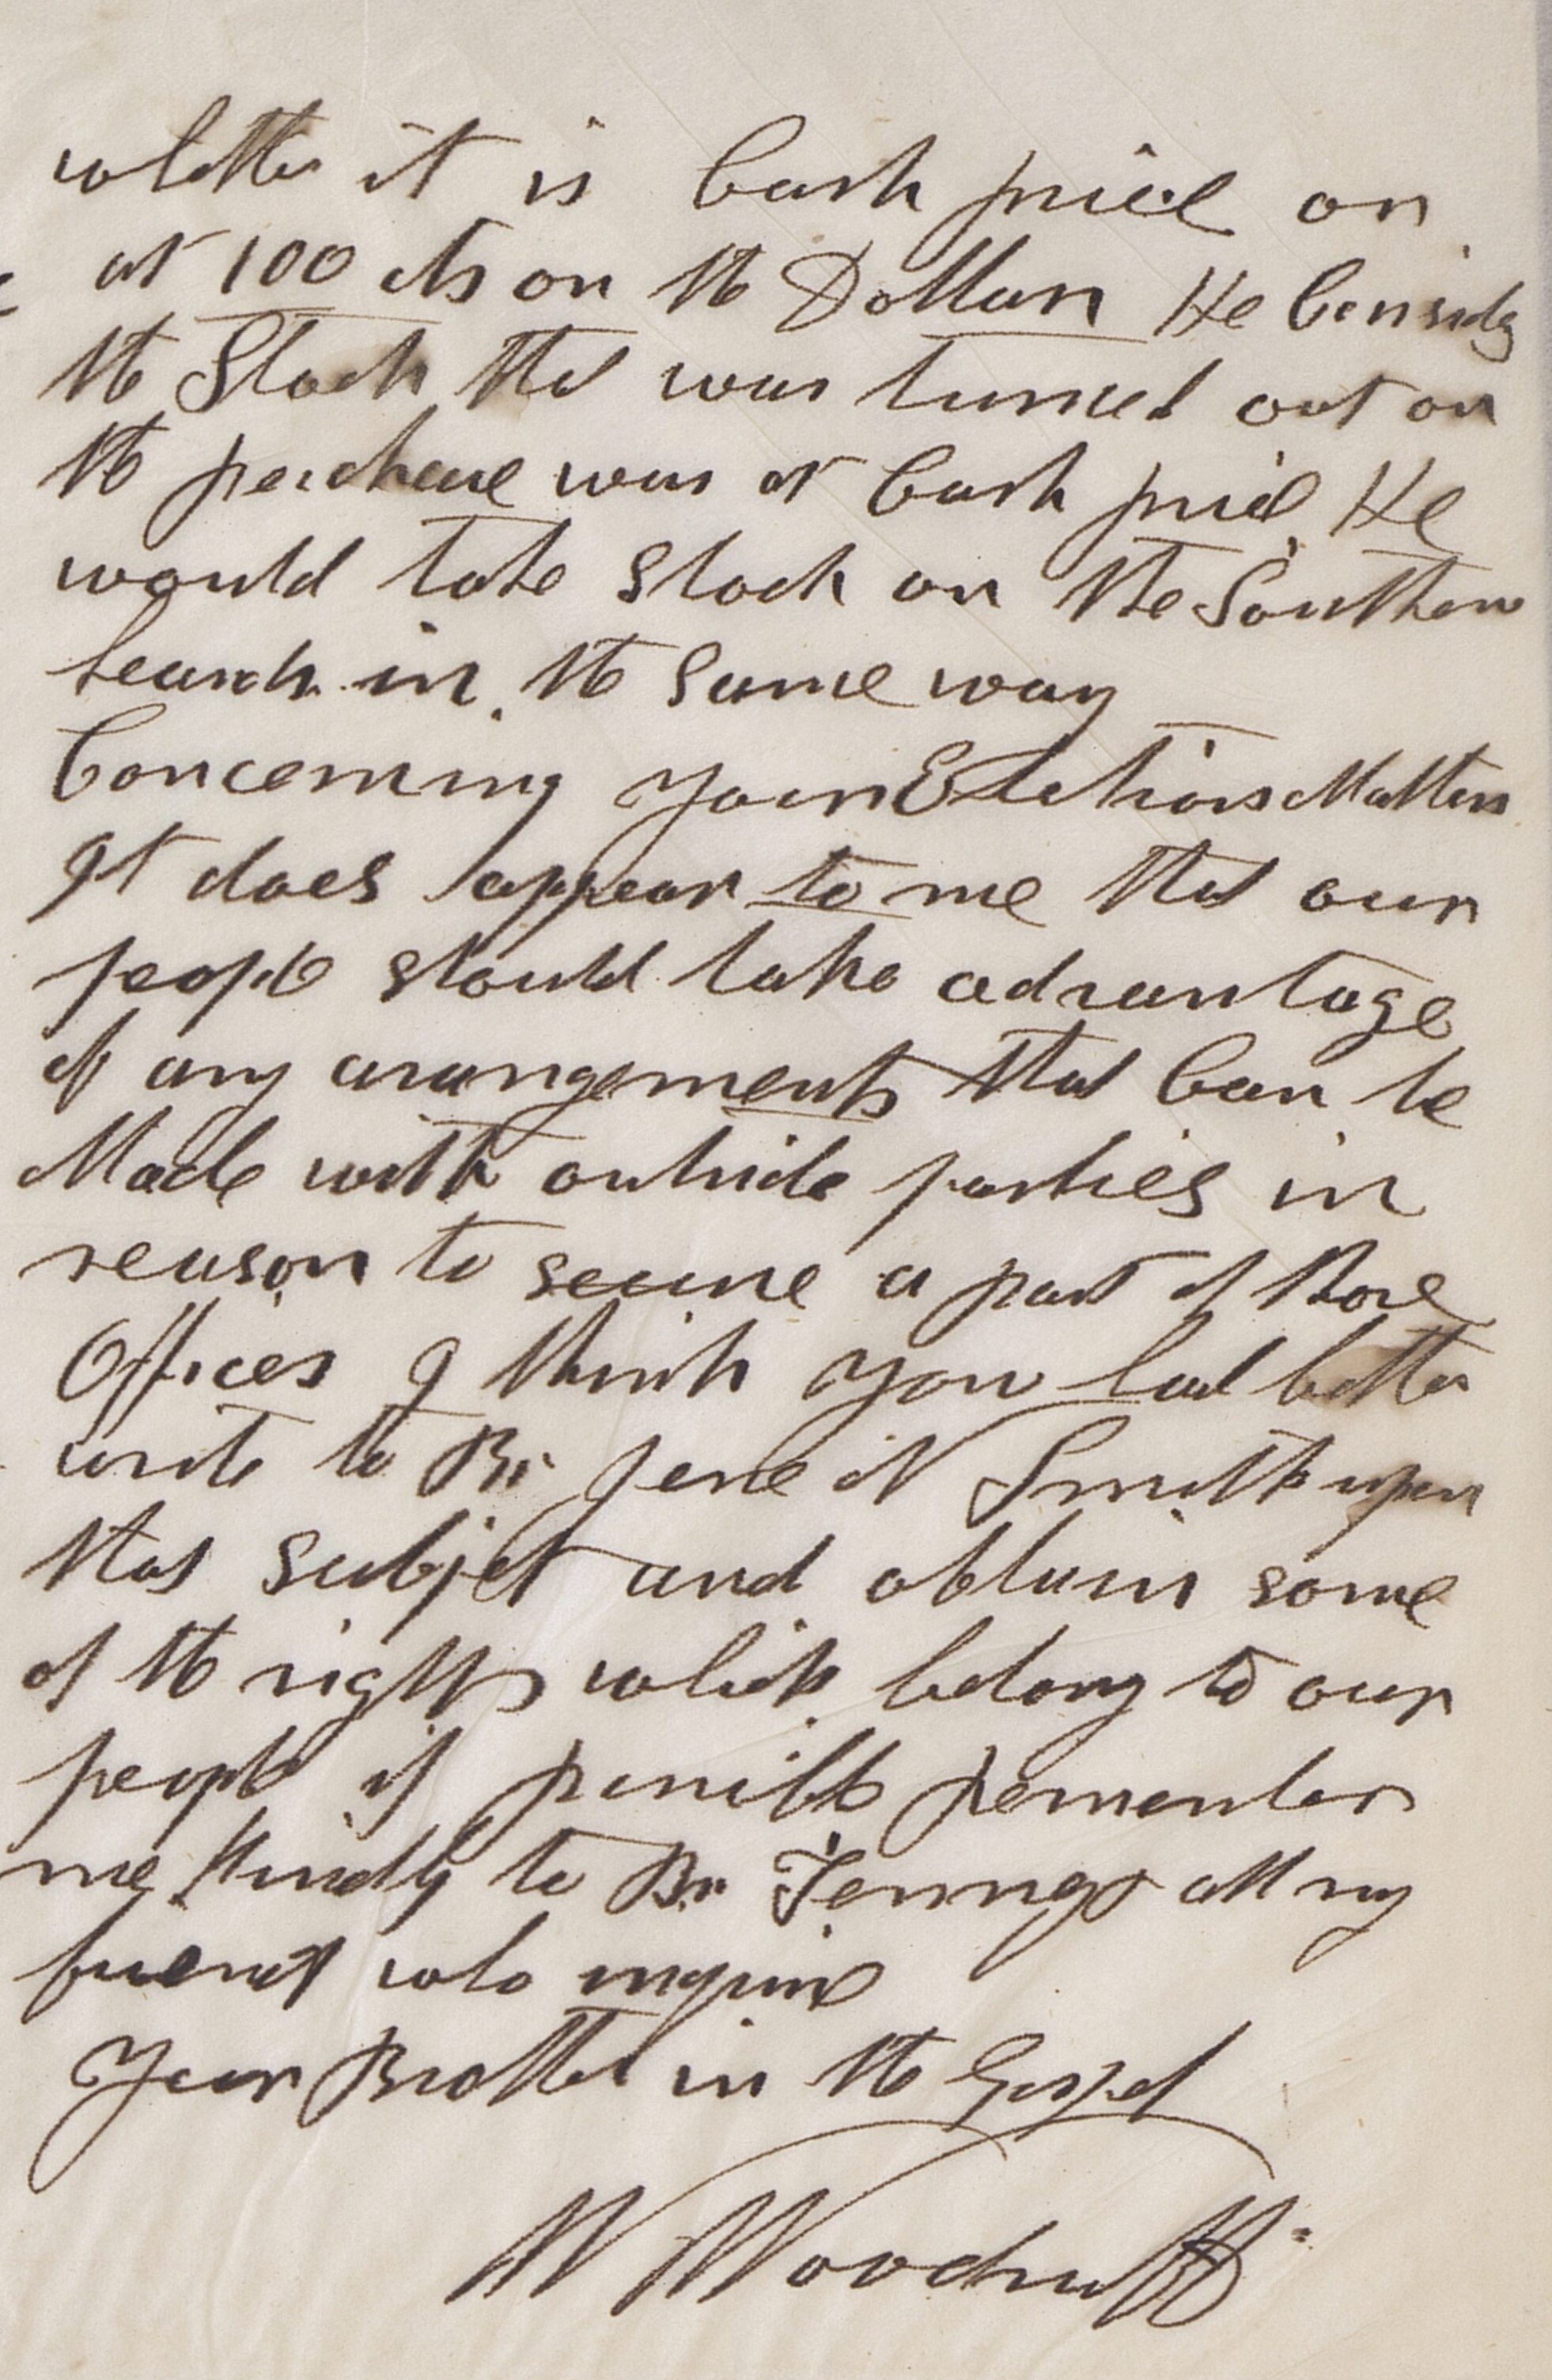 whether it is Cash price or
at 100 cts on the Dollar He Consids
the Stock that was turned out on
the purchase was at Cash price, He
would take Stock on the Southern
search in the same way
Concerning your Elections Matters
It does appear to me that our
people should take advantage
of any arangements that Can be
Made with outside parties in
reason to secure a part of those
Offices I think you had better
write to Br Jesse N Smith upon
that subjet and obtain some
of the rights which belong to our
people if possible remember
me kindly to Br Jennings all my
friends who inquire
Your Brother in the Gospel
W Woodruff